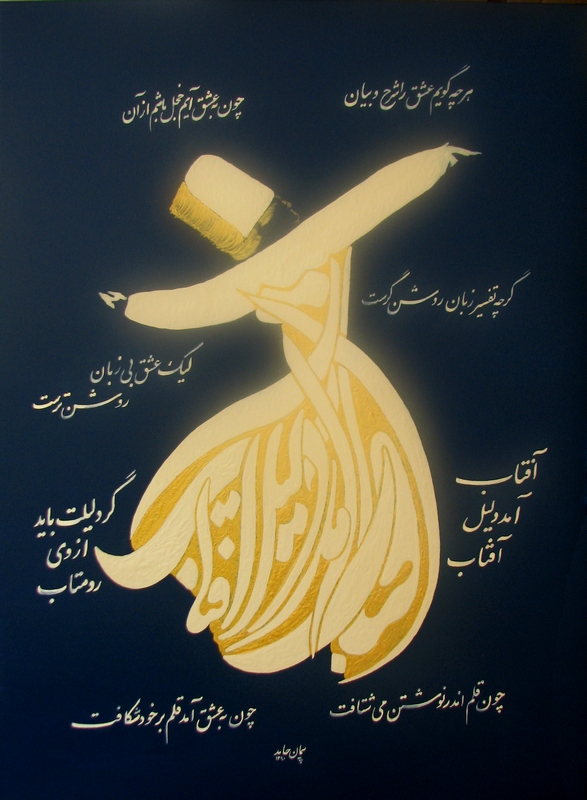 هر چه گویم عشق را شرح و بیان
چون به عشق آیم خجل باشم از آن
گرچه تفسیر زبان روشن‌گرست
لیک عشق بی زبان
روشن ترست
آفتاب
آمد دلیل
آفتاب
گر دلیلت باید
از وی
رو متاب
چون قلم اندر نوشتن می شتافت
چون به عشق آمد قلم بر خود شکافت
آفتاب آمد دلیل آفتاب